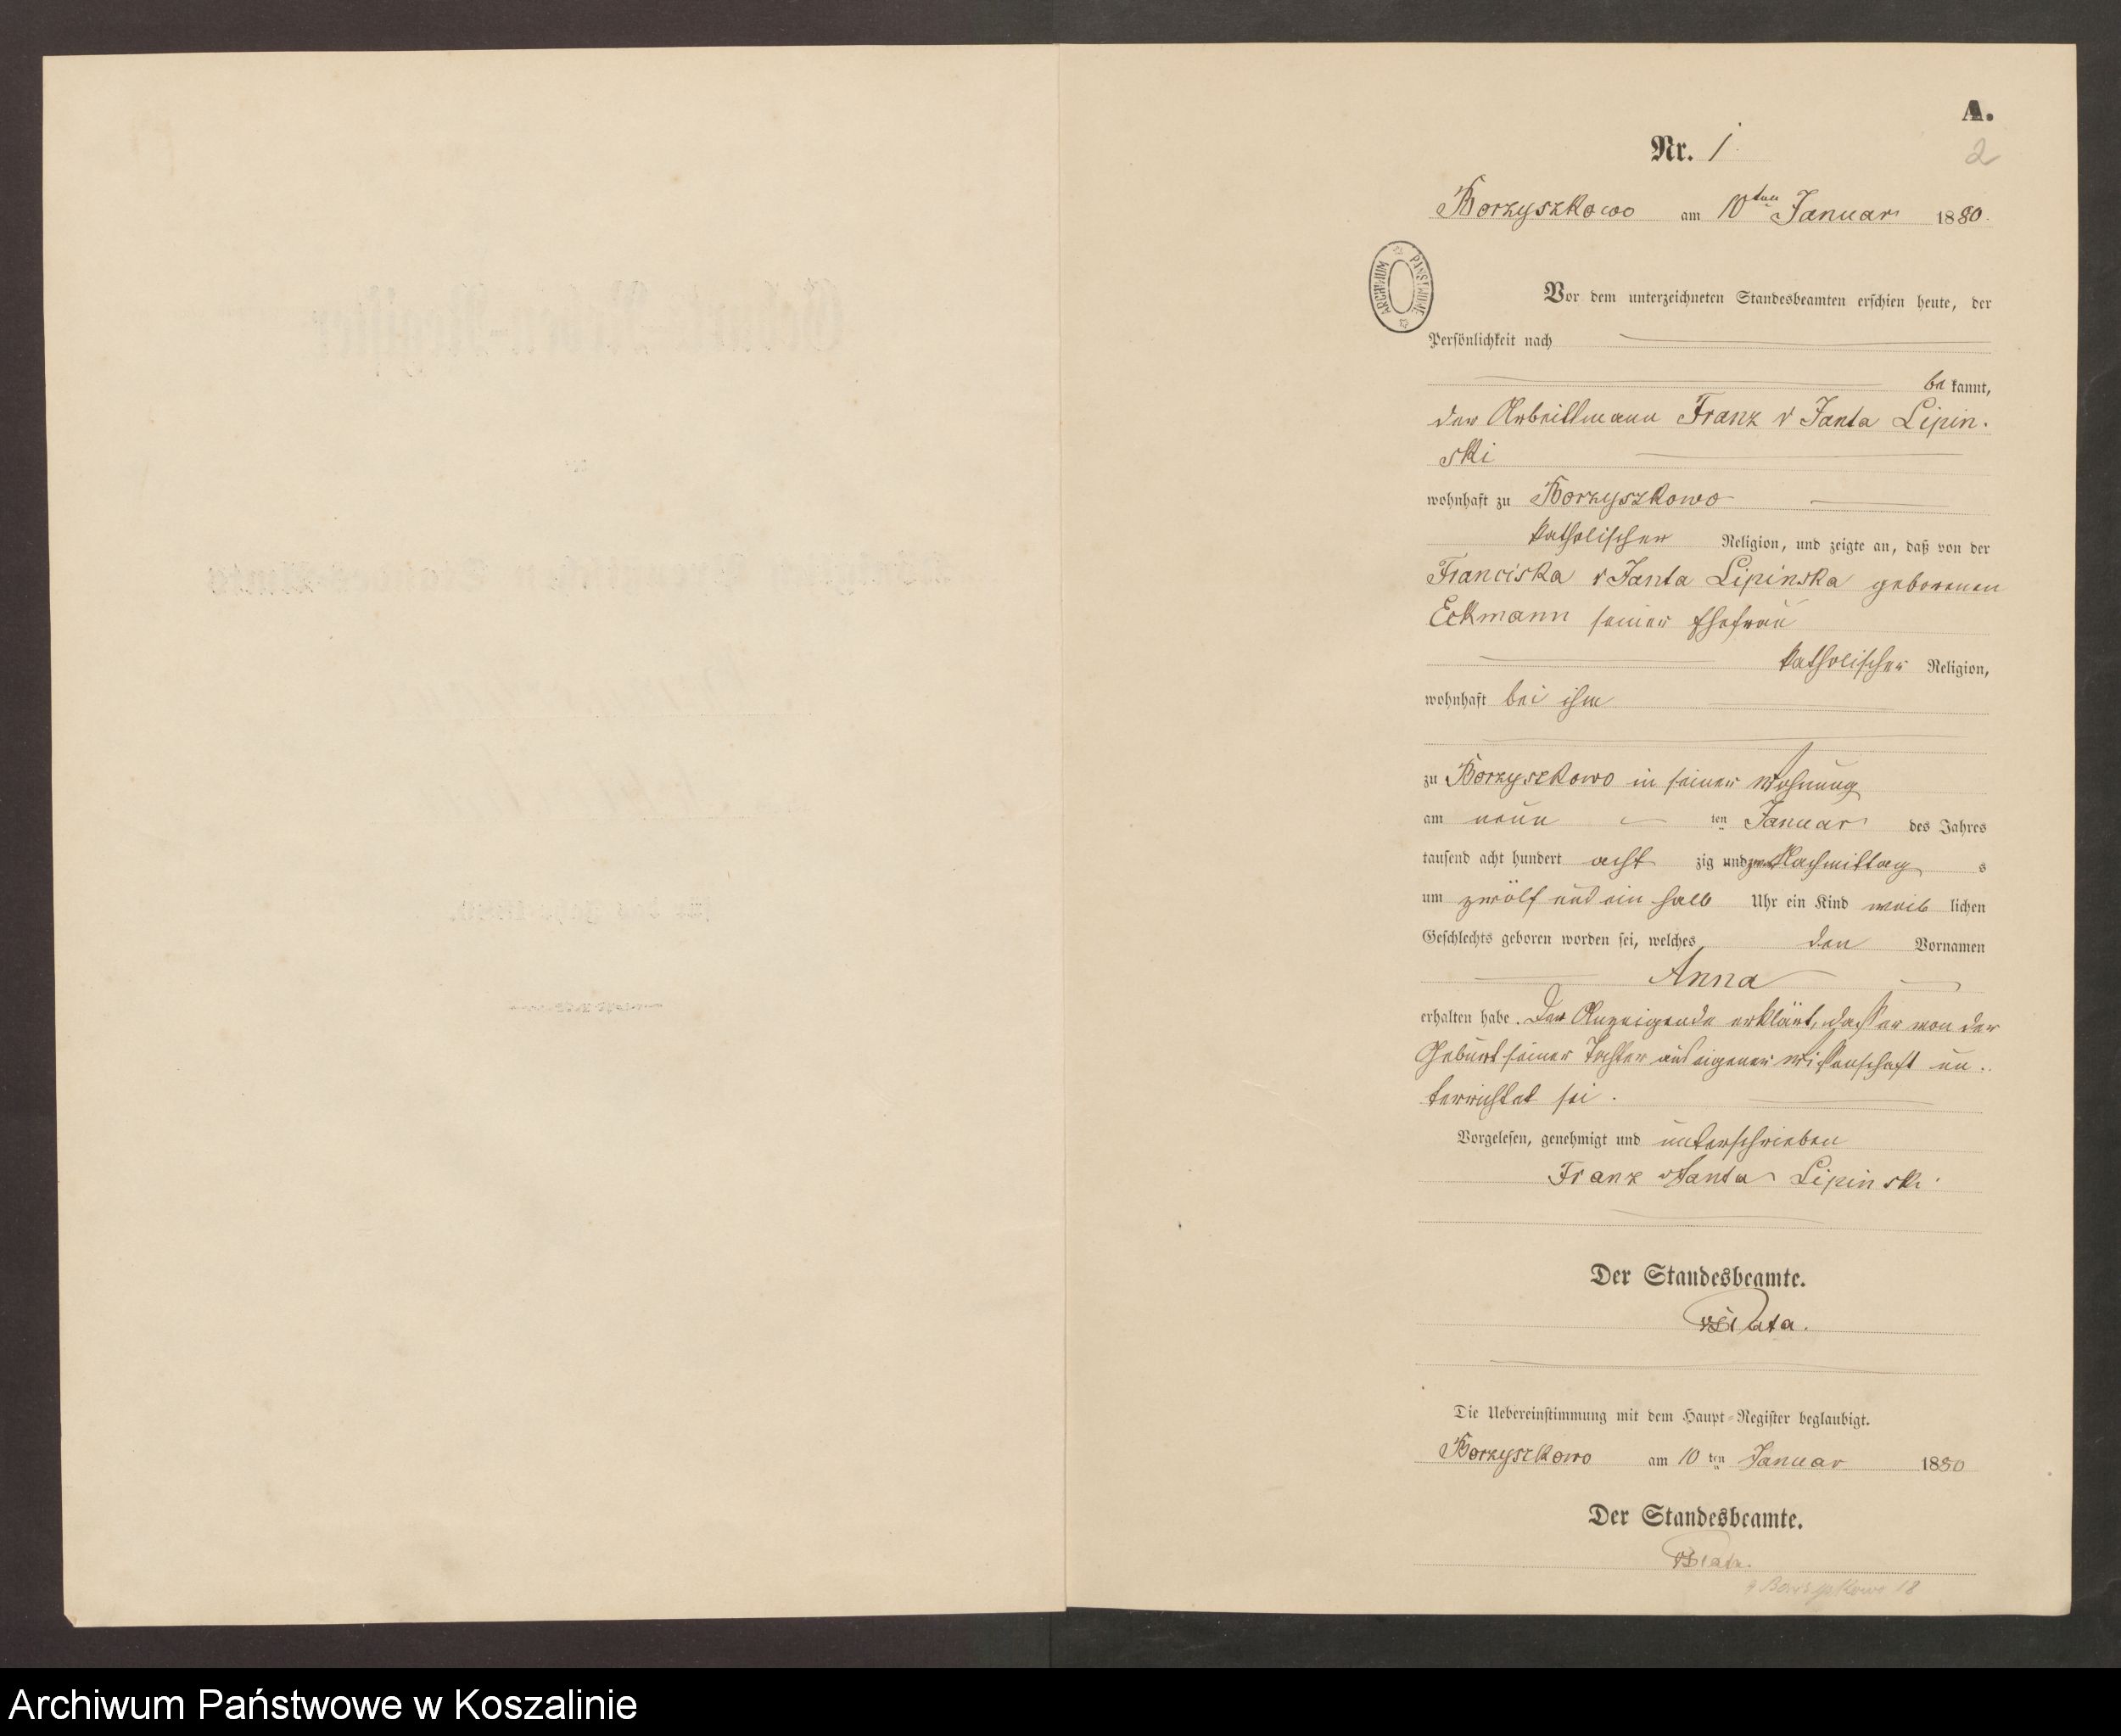 A.
Nr. 1
2
Borzyszkowo am 10ten Januar 1880.
ARCHIWUM PAŃSTWOWE
Vor dem unterzeichneten Standesbeamten erschien heute, der
Persönlichkeit nach
be kannt,
der Arbeitsmann Franz v Janta Lipin-
ski
wohnhaft zu Borzyszkowo
katholischer Religion, und zeigte an, daß von der
Franciska v Janta Lipinska geborenen
Eckmann seiner Ehefrau
katholischer Religion,
wohnhaft bei ihm
zu Borzyszkowo in seiner Wohnung
am neun ten Januar des Jahres
tausend acht hundert acht zig und Nachmittag s
um zwölf und ein halb Uhr ein Kind weib lichen
Geschlechts geboren worden sei, welches den Vornamen
Anna
erhalten habe. Der Anzeigende erklärt, daß er von der
Geburt seiner Tochter aus eigener Wissenschaft un-
terrichtet sei.
Vorgelesen, genehmigt und unterschrieben
Franz v Janta Lipinski
Der Standesbeamte.
Die Uebereinstimmung mit dem Haupt-Register beglaubigt.
Borzyszkowo am 10 ten Januar 1880
Der Standesbeamte.
Borzyszkowo 18
Archiwum Państwowe w Koszalinie